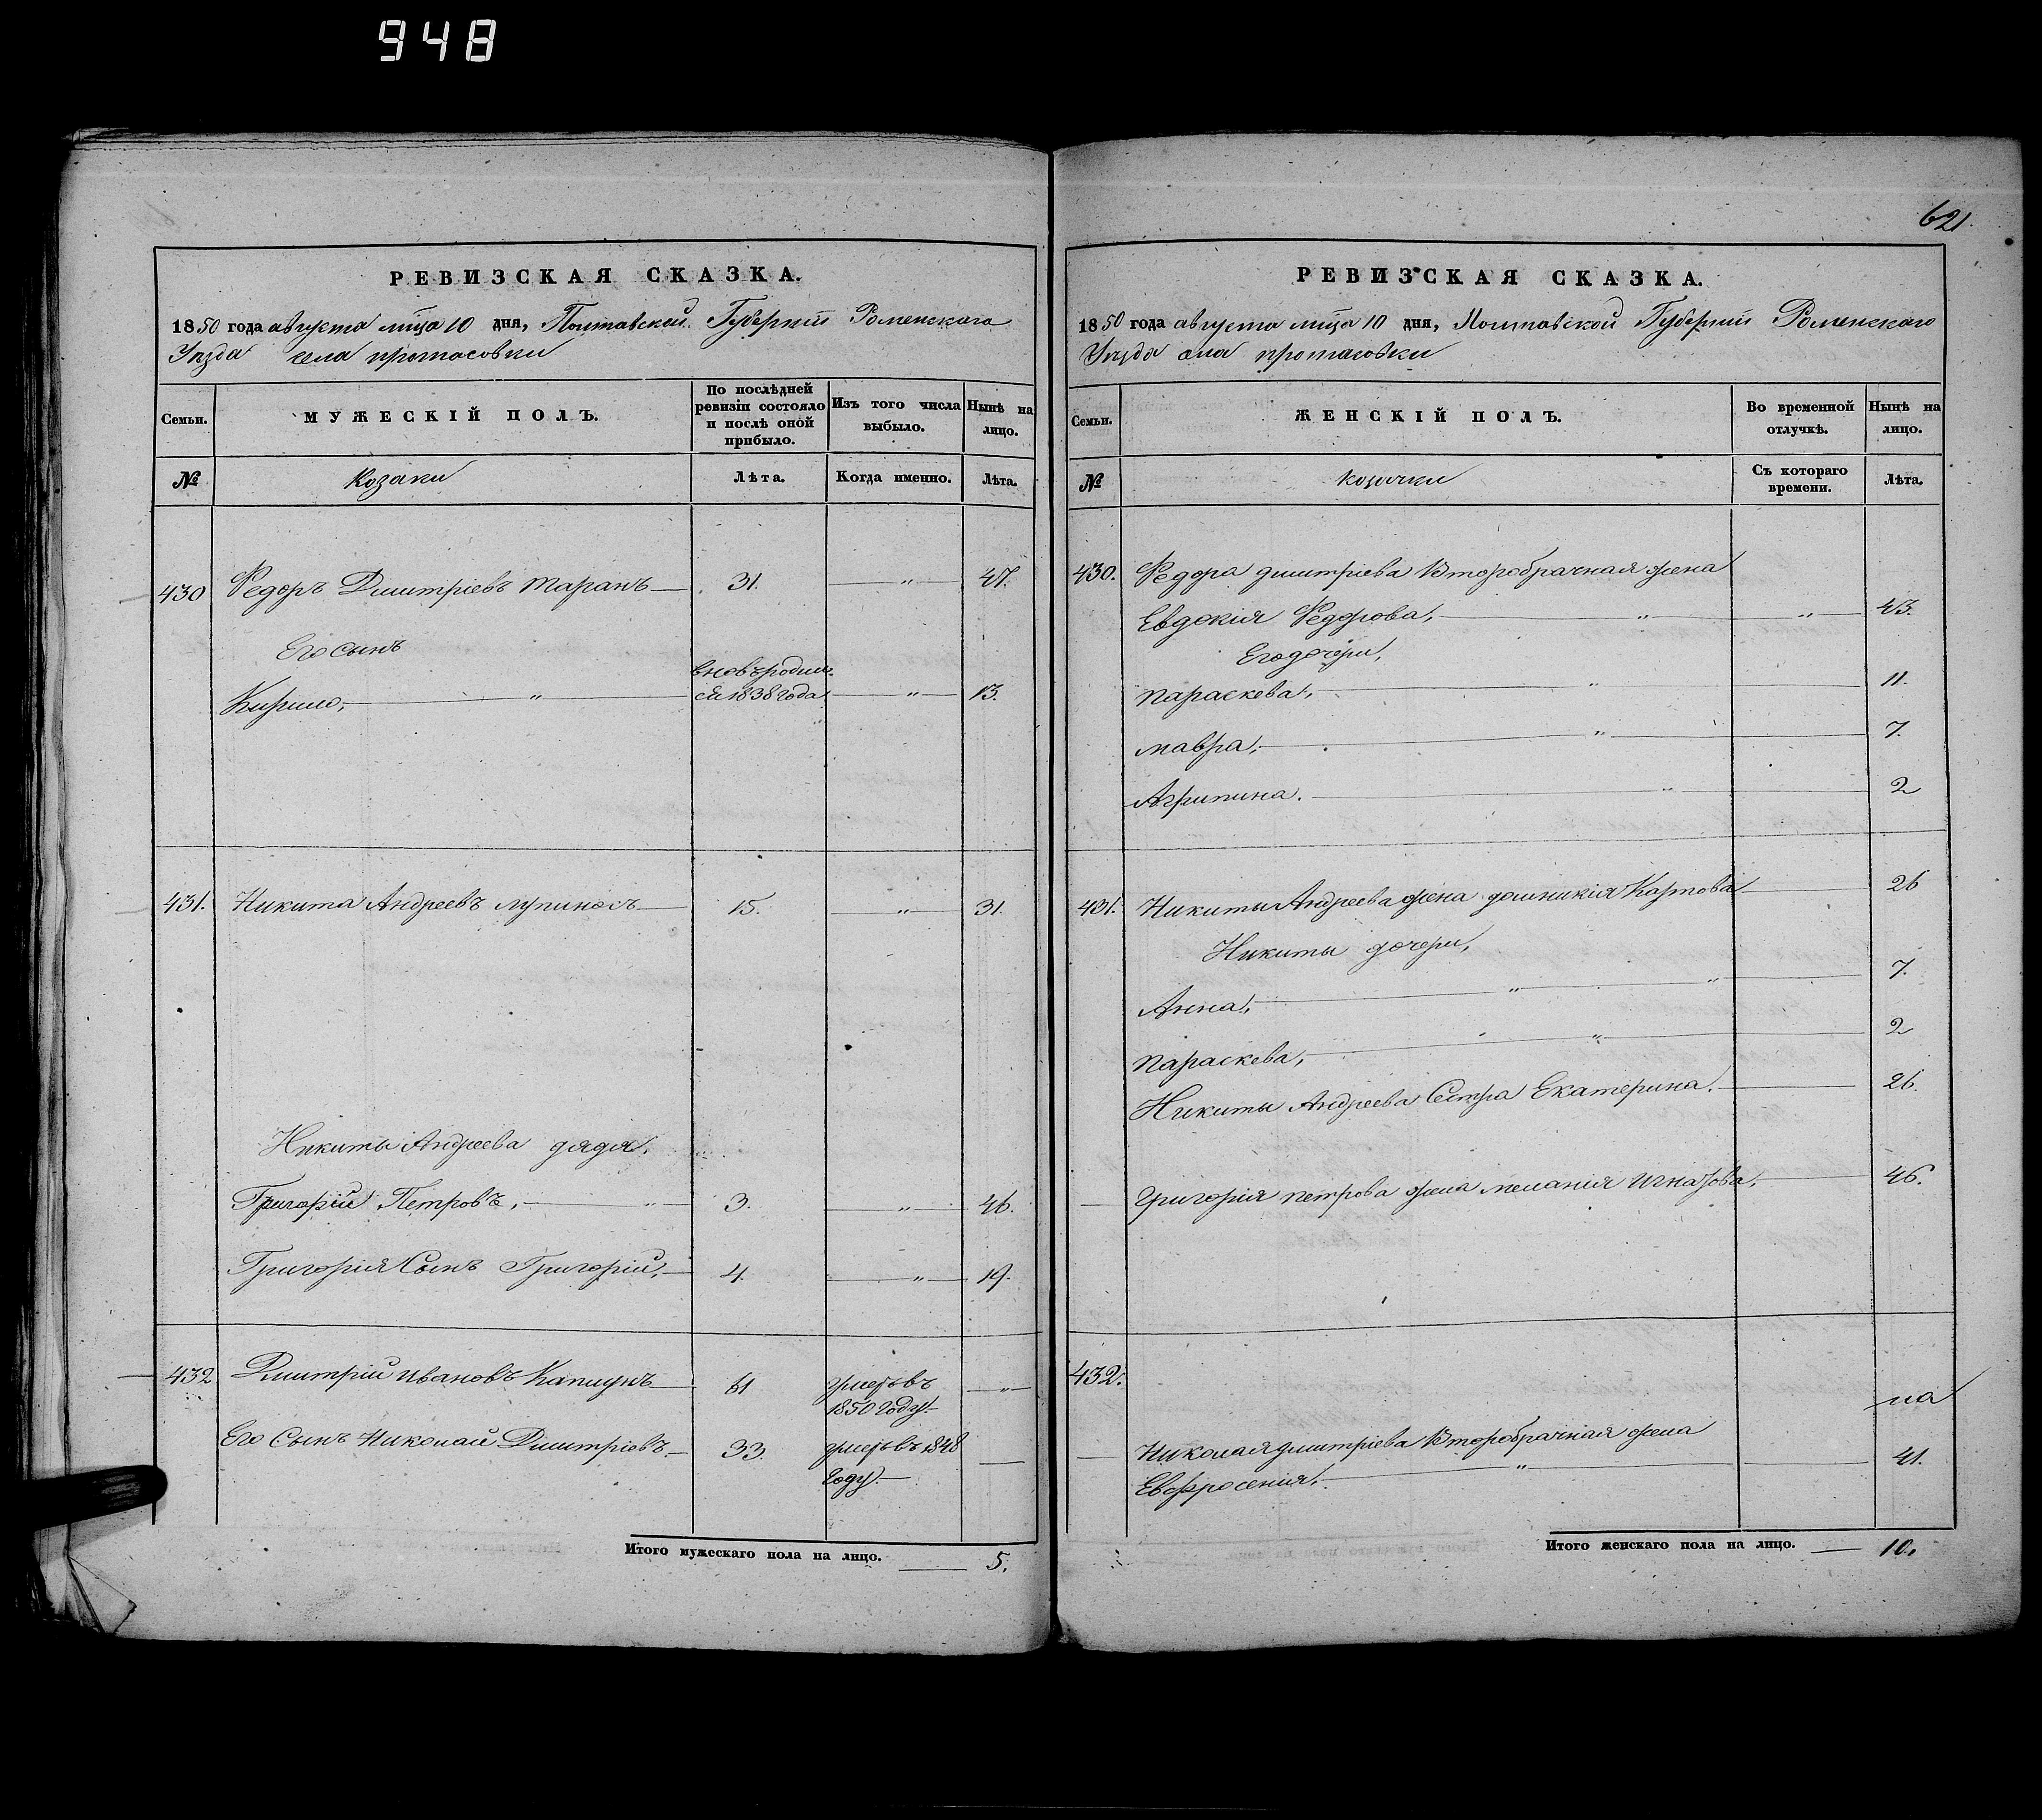 948
РЕВИЗСКАЯ СКАЗКА.
1850 года августа мцa 10 дня, Полтавской Губерніи Роменскаго
Уѣзда села протасовки
Семьи.
МУЖЕСКІЙ ПОЛЪ.
По послѣдней ревизіи состояло и послѣ оной прибыло.
Изъ того числа выбыло.
Нынѣ на лицо.
№
Козаки
Лѣта.
Когда именно.
Лѣта.
430 Федоръ Дмитріевъ Таранъ 31. " 47.
Его сынъ
Кирило, " вновь родил.
ся 1838 года " 13.
431. Никита Андреевъ лупиносъ 15. " 31.
Никиты Андреева дядя.
Григорій Петровъ, " 3. " 46.
Григорія Сынъ Григорій, 4. " 19.
432 Дмитрій Ивановъ Капцунъ 61 умеръ въ "
1850 году
Его Сынъ Николай Дмитріевъ. 33. умеръ въ 1848
году
Итого мужескаго пола на лицо. 5.
621.
РЕВИЗСКАЯ СКАЗКА.
1850 года августа мцa 10 дня, Полтавской Губерніи Роменскаго
Уѣзда села протасовки
Семьи.
ЖЕНСКІЙ ПОЛЪ.
Во временной отлучкѣ.
Нынѣ на лицо.
№
козачки
Съ котораго времени.
Лѣта.
430. Федора дмитріева Второбрачная жена
Евдокія Федорова, " " 43.
Его дочери,
параскева, " 11.
мавра, " 7.
Агрипина. " 2
431. Никиты Андреева жена домникія Карпова 26
Никиты дочери,
Анна, " " 7.
параскева, " 2
Никиты Андреева Сестра Екатерина. 26.
Григорія петрова жена меланія игнатова, 46.
432.
Николая дмитріева Второбрачная жена
Евфросенія, " 41.
Итого женскаго пола на лицо. 10.